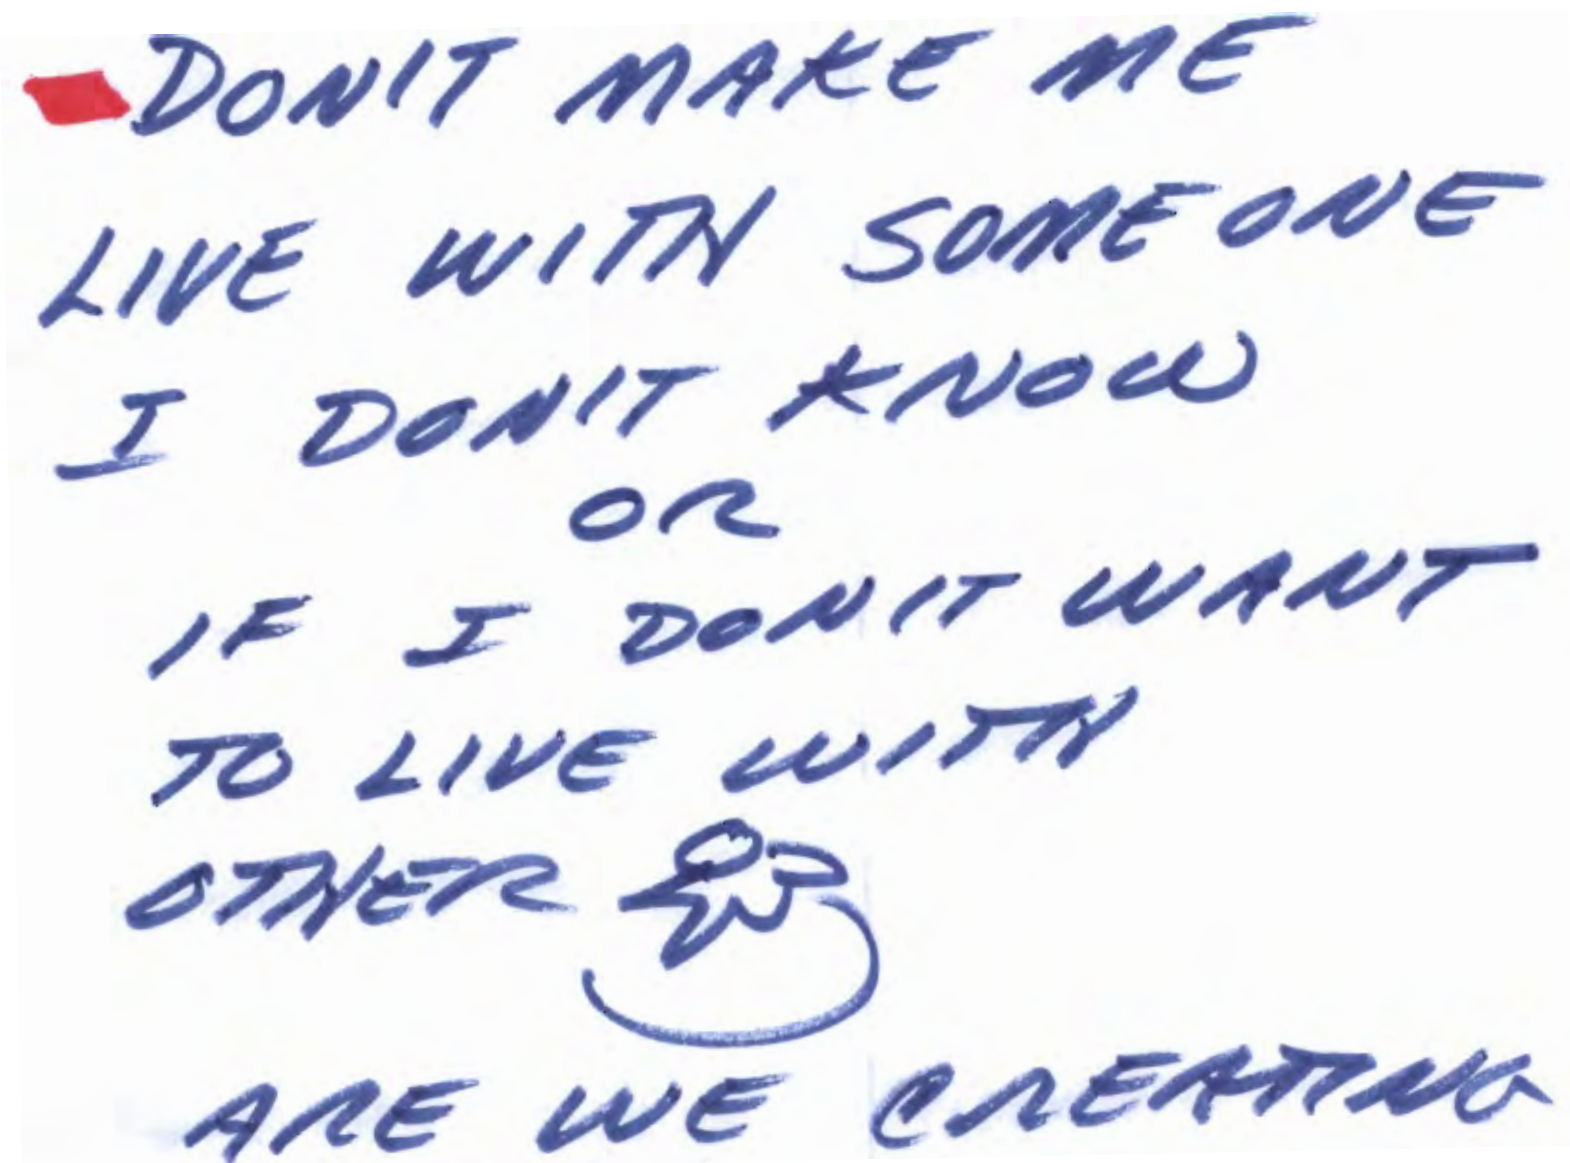 DON'T MAKE ME
LIVE WITH SOMEONE
I DON'T KNOW
OR
IF I DON'T WANT
TO LIVE WITH
OTHER
ARE WE CREATING